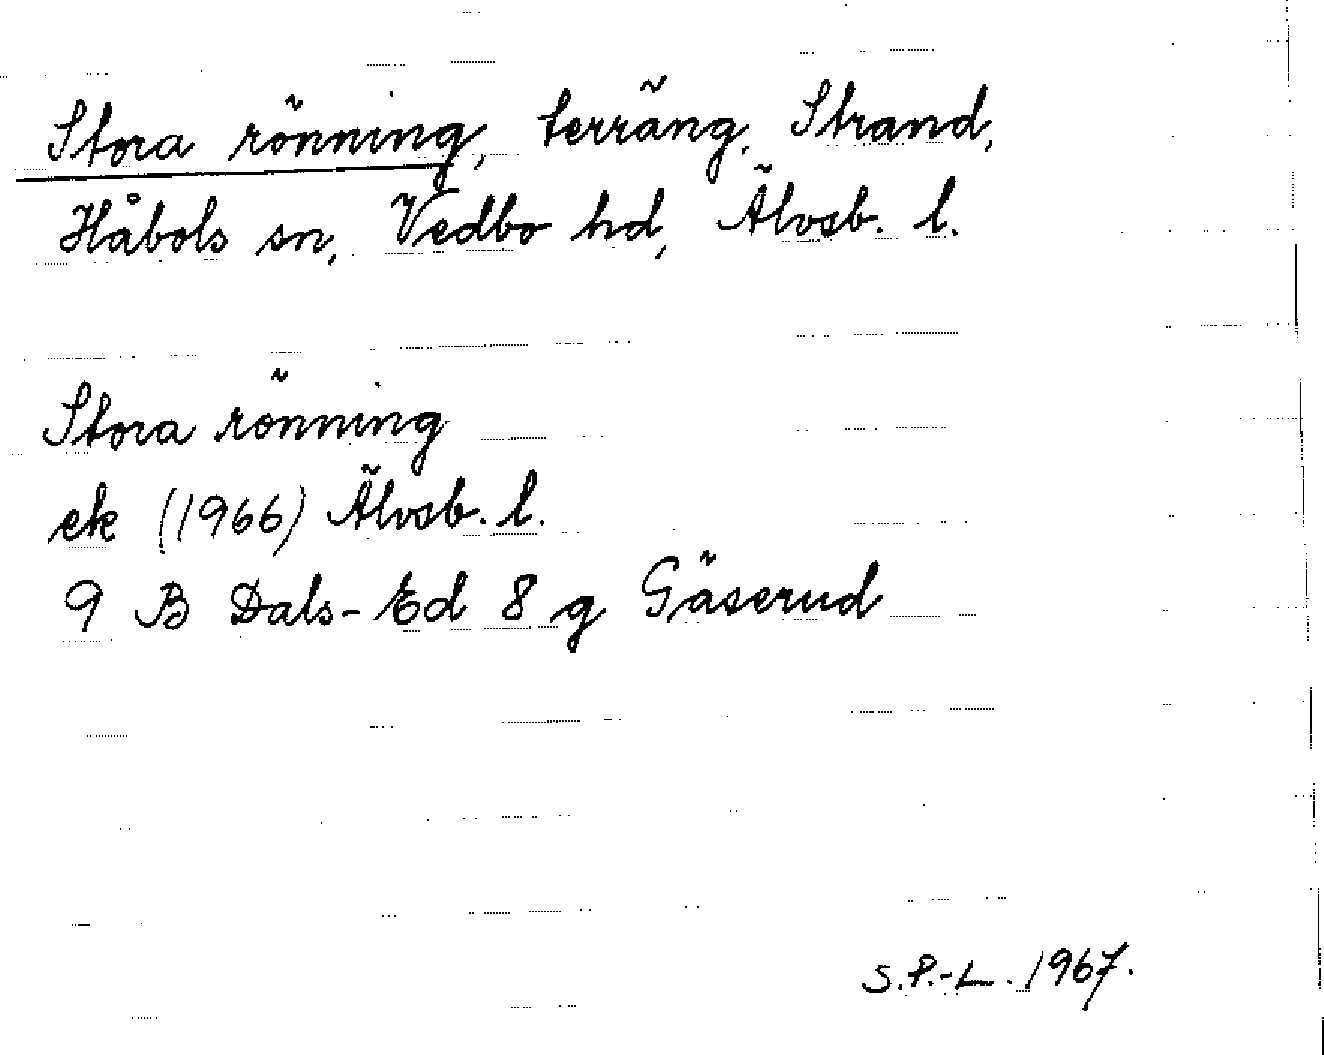 Stora rönning, terräng, Strand,
Håbols sn, Vedbo hd, Älvsb. l.
Stora rönning
ek (1966) Älvsb. l.
9 B Dals-Ed 8 g Gäserud
S.P.-L. 1967.